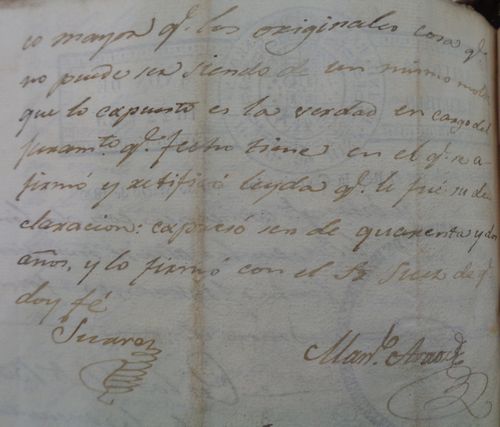 co mayor q.e los originales cosa q.e
no puede ser siendo de un mismo molde
que lo expuesto es la verdad en cargo del
juram.to q.e fecho tiene en el q.e se a
firmó y ratificó leyda q.e le fué su de
claracion: expresó ser de quarenta y dos
años, y lo firmó con el Sr Juez de q.e
doy fé
Suarez
Man.l